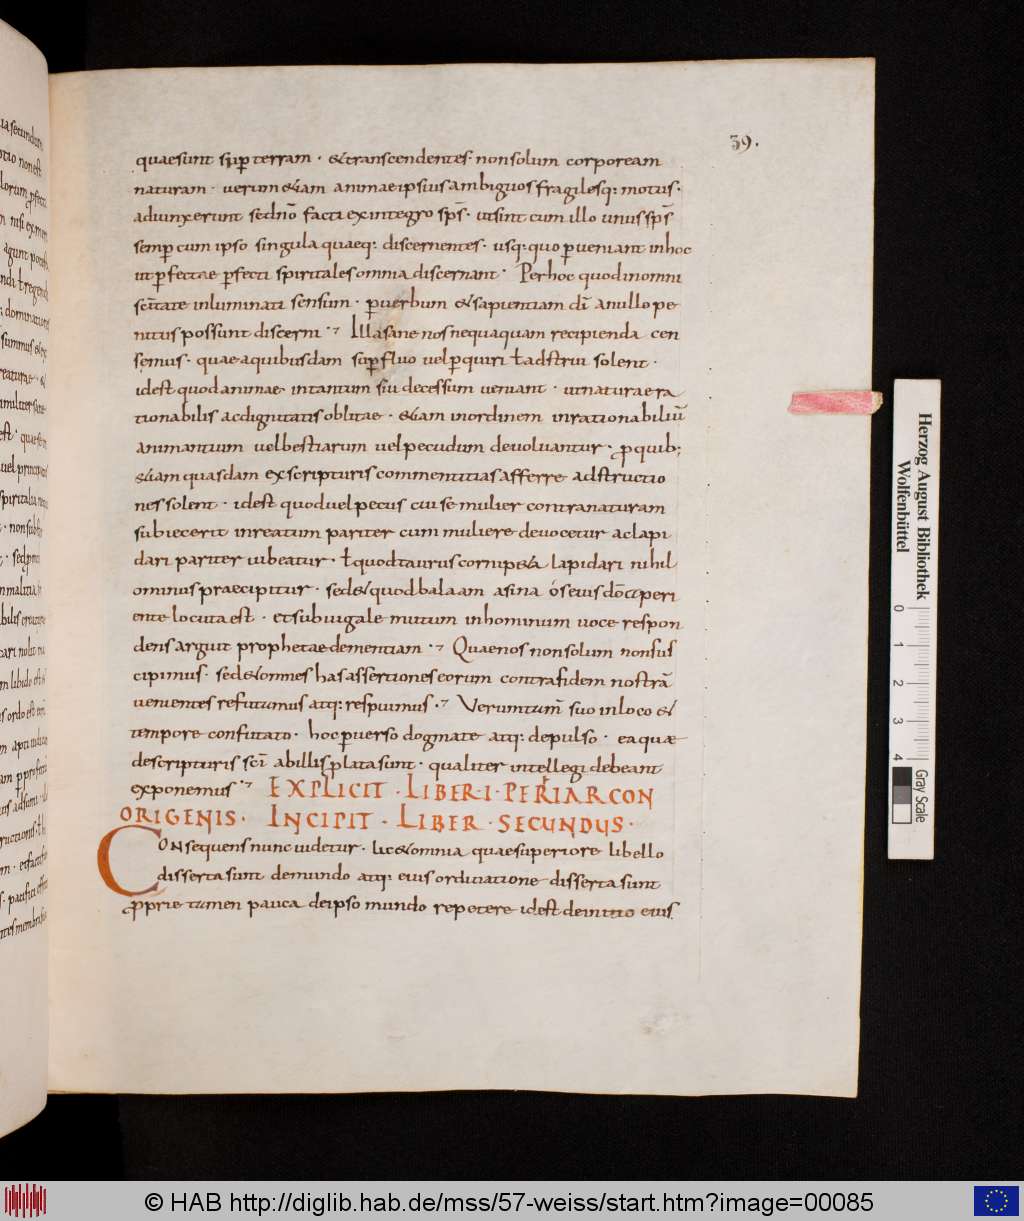 39.
quaesunt sup terram · &transcendentes· nonsolum corpoream
naturam · uerum &iam animaeipsius ambiguos fragilesq; motus·
adiunxerunt sedno facti exintegro sps · utsint cum illo unus sps
semp cum ipso singula quaeq; discernentes · usq; quo pueniant inhoc
ut pfectae pfecti spiritales omnia discernant · Perhoc quodinomni
scitate inluminati sensum · puerbum & sapientiam di anullo pe
nitus possunt discerni · Illasane nos nequaquam recipienda cen
semus · quae aquibusdam supfluo uel pquiri ł adstrui solent ·
idest quodanimae intantum sui decessum ueniant · utnaturae ra
tionabilis acdignitatis oblitae · &iam inordinem inrationabiliū
animantium uelbestiarum uel pecudum deuoluantur · pquib;
&iam quasdam exscripturis commentitias afferre adstructio
nes solent · idest quoduel pecus cui se mulier contranaturam
subiecerit inreatum pariter cum muliere deuocetur aclapi
dari pariter iubeatur · ł quodtaurus cornip&a lapidari nihil
ominus praecipitur · sed&quod balaam asina os eius do aperi
ente locuta est · etsubiugale mutum inhominum uoce respon
dens arguit prophetae dementiam · Quae nos nonsolum nonsus
cipimus · sed&omnes has assertiones eorum contrafidem nostrā
uenientes refutamus atq; respuimus · Uerumtum suo inloco &
tempore confutato · hoc puerso dogmate atq; depulso · ea quæ
descripturis sci abillis plata sunt · qualiter intellegi debeant
exponemus · EXPLICIT · LIBER · I · PERIARCON
ORIGENIS · INCIPIT · LIBER · SECUNDUS ·
CONsequens nunc uidetur · lic&omnia quaesuperiore libello
disserta sunt demundo atq; eius ordinatione disserta sunt
pprie tamen pauca deipso mundo repetere idest deinitio eius
Herzog August Bibliothek
Wolfenbüttel
0 1 2 3 4
Gray Scale
© HAB http://diglib.hab.de/mss/57-weiss/start.htm?image=00085